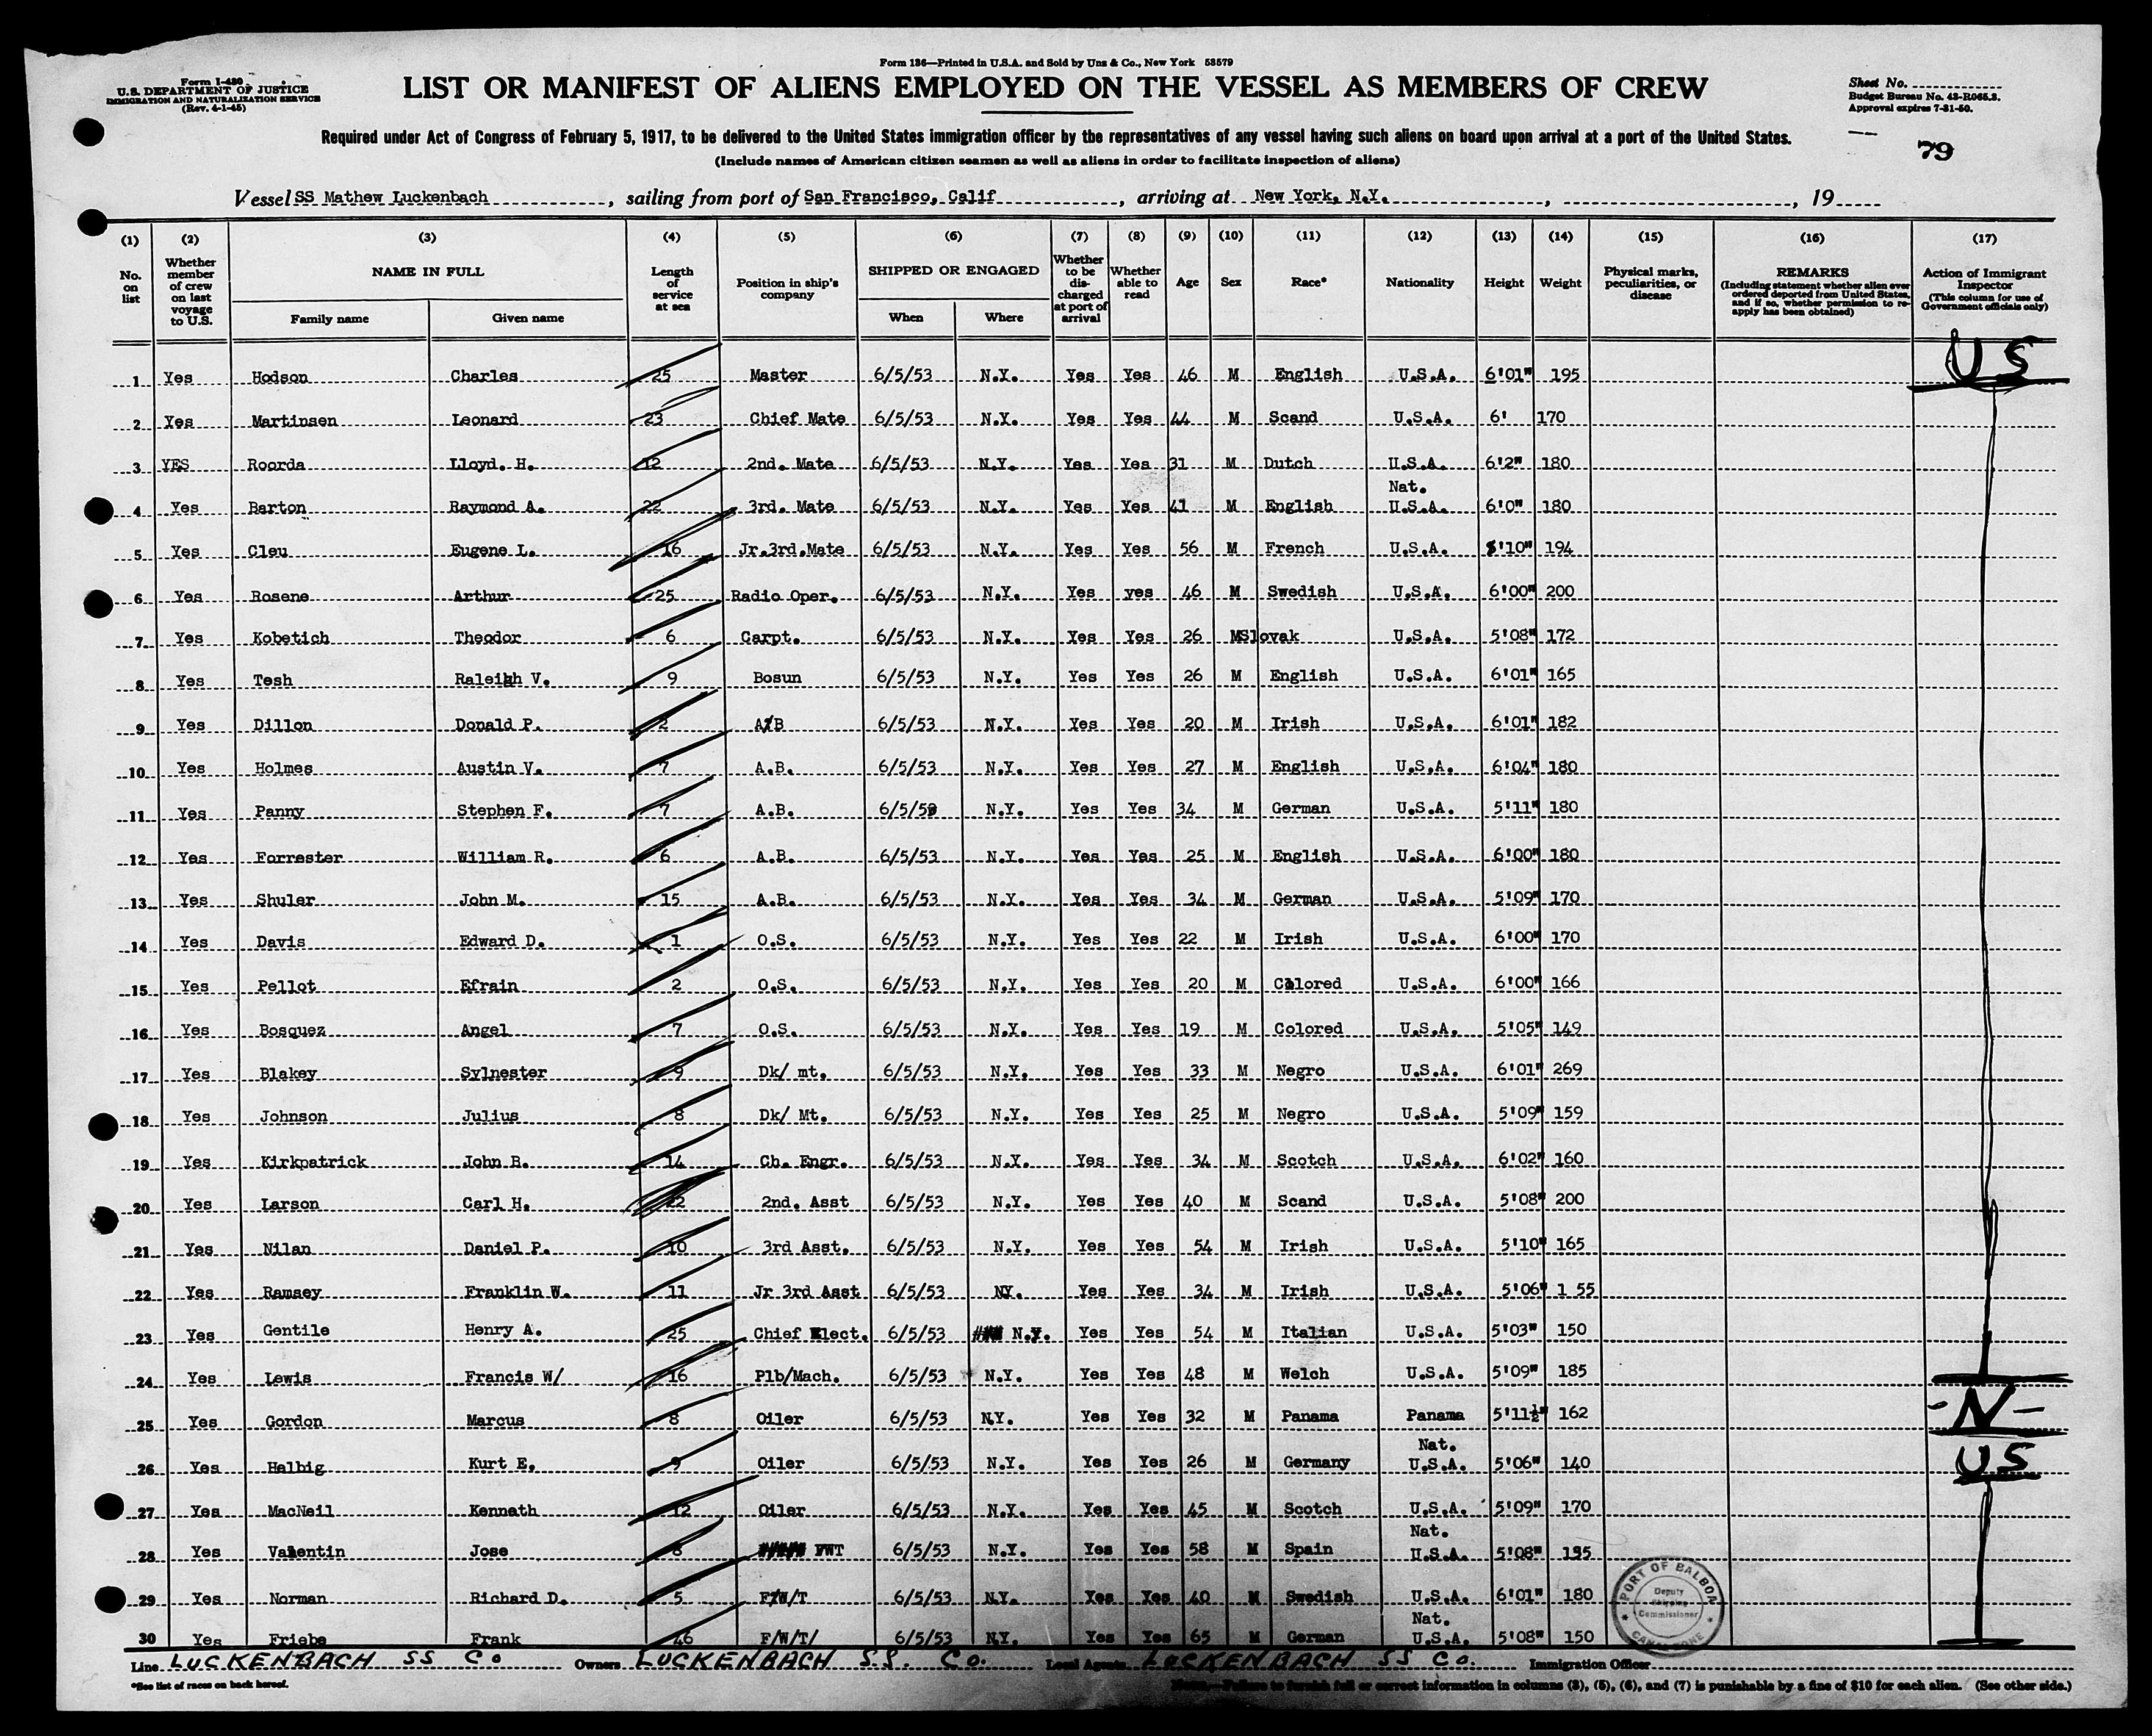 Form 136—Printed in U.S.A. and Sold by Unz & Co., New York 58579
Form I-480
U.S. DEPARTMENT OF JUSTICE
IMMIGRATION AND NATURALIZATION SERVICE
(Rev. 4-1-45)
LIST OR MANIFEST OF ALIENS EMPLOYED ON THE VESSEL AS MEMBERS OF CREW
Sheet No.
Budget Bureau No. 43-R065.3.
Approval expires 7-31-50.
79
Required under Act of Congress of February 5, 1917, to be delivered to the United States immigration officer by the representatives of any vessel having such aliens on board upon arrival at a port of the United States.
(Include names of American citizen seamen as well as aliens in order to facilitate inspection of aliens)
Vessel SS Mathew Luckenbach, sailing from port of San Francisco, Calif, arriving at New York, N.Y., , 19
(1) (2) (3) (4) (5) (6) (7) (8) (9) (10) (11) (12) (13) (14) (15) (16) (17)
No. on list
Whether member of crew on last voyage to U.S.
NAME IN FULL
Family name Given name
Length of service at sea
Position in ship's company
SHIPPED OR ENGAGED
When Where
Whether to be discharged at port of arrival
Whether able to read
Age
Sex
Race*
Nationality
Height
Weight
Physical marks, peculiarities, or disease
REMARKS
(Including statement whether alien ever ordered deported from United States, and if so, whether permission to reapply has been obtained)
Action of Immigrant Inspector
(This column for use of Government officials only)
1 Yes Hodson Charles 25 Master 6/5/53 N.Y. Yes Yes 46 M English U.S.A. 6'01" 195 US
2 Yes Martinsen Leonard 23 Chief Mate 6/5/53 N.Y. Yes Yes 44 M Scand U.S.A. 6' 170
3 YES Roorda Lloyd. H. 12 2nd. Mate 6/5/53 N.Y. Yes Yes 31 M Dutch U.S.A. 6'2" 180
4 Yes Barton Raymond A. 22 3rd. Mate 6/5/53 N.Y. Yes Yes 41 M English Nat. U.S.A. 6'0" 180
5 Yes Cleu Eugene L. 16 Jr.3rd.Mate 6/5/53 N.Y. Yes Yes 56 M French U.S.A. 5'10" 194
6 Yes Rosene Arthur 25 Radio Oper. 6/5/53 N.Y. Yes yes 46 M Swedish U.S.A. 6'00" 200
7 Yes Kobetich Theodor 6 Carpt. 6/5/53 N.Y. Yes Yes 26 M Slovak U.S.A. 5'08" 172
8 Yes Tesh Raleigh V. 9 Bosun 6/5/53 N.Y. Yes Yes 26 M English U.S.A. 6'01" 165
9 Yes Dillon Donald P. 2 A/B 6/5/53 N.Y. Yes Yes 20 M Irish U.S.A. 6'01" 182
10 Yes Holmes Austin V. 7 A.B. 6/5/53 N.Y. Yes Yes 27 M English U.S.A. 6'04" 180
11 Yes Panny Stephen F. 7 A.B. 6/5/53 N.Y. Yes Yes 34 M German U.S.A. 5'11" 180
12 Yes Forrester William R. 6 A.B. 6/5/53 N.Y. Yes Yes 25 M English U.S.A. 6'00" 180
13 Yes Shuler John M. 15 A.B. 6/5/53 N.Y. Yes Yes 34 M German U.S.A. 5'09" 170
14 Yes Davis Edward D. 1 O.S. 6/5/53 N.Y. Yes Yes 22 M Irish U.S.A. 6'00" 170
15 Yes Pellot Efrain 2 O.S. 6/5/53 N.Y. Yes Yes 20 M Colored U.S.A. 6'00" 166
16 Yes Bosquez Angel 7 O.S. 6/5/53 N.Y. Yes Yes 19 M Colored U.S.A. 5'05" 149
17 Yes Blakey Sylnester 9 Dk/ mt. 6/5/53 N.Y. Yes Yes 33 M Negro U.S.A. 6'01" 269
18 Yes Johnson Julius 8 Dk/ Mt. 6/5/53 N.Y. Yes Yes 25 M Negro U.S.A. 5'09" 159
19 Yes Kirkpatrick John B. 14 Ch. Engr. 6/5/53 N.Y. Yes Yes 34 M Scotch U.S.A. 6'02" 160
20 Yes Larson Carl H. 22 2nd. Asst 6/5/53 N.Y. Yes Yes 40 M Scand U.S.A. 5'08" 200
21 Yes Nilan Daniel P. 10 3rd Asst. 6/5/53 N.Y. Yes Yes 54 M Irish U.S.A. 5'10" 165
22 Yes Ramsey Franklin W. 11 Jr 3rd Asst 6/5/53 NY. Yes Yes 34 M Irish U.S.A. 5'06" 1 55
23 Yes Gentile Henry A. 25 Chief Elect. 6/5/53 N.Y. Yes Yes 54 M Italian U.S.A. 5'03" 150
24 Yes Lewis Francis W/ 16 Plb/Mach. 6/5/53 N.Y. Yes Yes 48 M Welch U.S.A. 5'09" 185
25 Yes Gordon Marcus 8 Oiler 6/5/53 N.Y. Yes Yes 32 M Panama Panama 5'11½" 162 -N-
26 Yes Helbig Kurt E. 9 Oiler 6/5/53 N.Y. Yes Yes 26 M Germany Nat. U.S.A. 5'06" 140 US
27 Yes MacNeil Kennath 12 Oiler 6/5/53 N.Y. Yes Yes 45 M Scotch U.S.A. 5'09" 170
28 Yes Valentin Jose 8 FWT 6/5/53 N.Y. Yes Yes 58 M Spain Nat. U.S.A. 5'08" 135
29 Yes Norman Richard D. 5 F/W/T 6/5/53 N.Y. Yes Yes 40 M Swedish U.S.A. 6'01" 180
30 Yes Friebe Frank 46 F/W/T/ 6/5/53 N.Y. Yes Yes 65 M German Nat. U.S.A. 5'08" 150
PORT OF BALBOA
Deputy
Shipping
Commissioner
CANAL ZONE
Line LUCKENBACH SS Co Owners LUCKENBACH S.S. Co. Local Agents LUCKENBACH SS Co. Immigration Officer
*See list of races on back hereof.
Note.—Failure to furnish full or correct information in columns (3), (5), (6), and (7) is punishable by a fine of $10 for each alien. (See other side.)